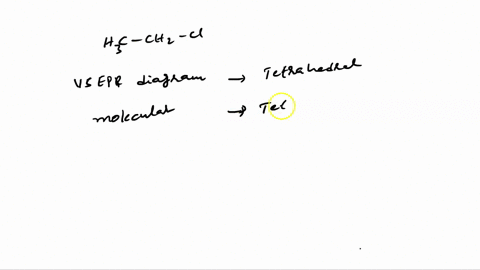 H₃C-CH₂-Cl
VSEPR diagram → Tetrahedral
molecular → Tet